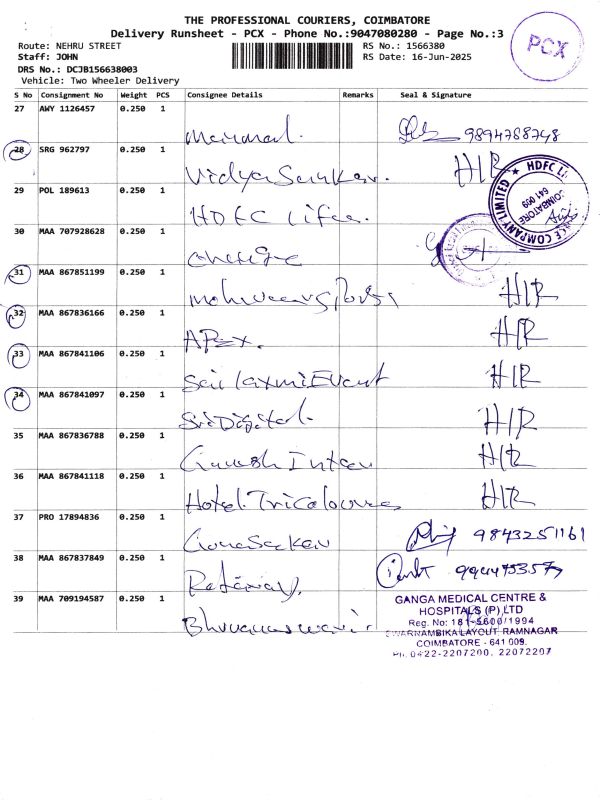 THE PROFESSIONAL COURIERS, COIMBATORE
Delivery Runsheet - PCX - Phone No.:9047080280 - Page No.:3
Route: NEHRU STREET
RS No.: 1566380
Staff: JOHN
RS Date: 16-Jun-2025
DRS No.: DCJB156638003
Vehicle: Two Wheeler Delivery
PCX
S No Consignment No Weight PCS Consignee Details Remarks Seal & Signature
27 AWY 1126457 0.250 1
9894788748
28 SRG 962797 0.250 1
Vidya Sankar. H/R
29 POL 189613 0.250 1
HDFC Life.
HDFC LI
COMPANY LIMITED
COIMBATORE
641 009
30 MAA 707928628 0.250 1
31 MAA 867851199 0.250 1
H/R
32 MAA 867836166 0.250 1
APex. H/R
33 MAA 867841106 0.250 1
Sai laxmi Event H/R
34 MAA 867841097 0.250 1
Sri Digital. H/R
35 MAA 867836788 0.250 1
Ganesh H/R
36 MAA 867841118 0.250 1
Hotel Tricolours H/R
37 PRO 17894836 0.250 1
Gunasekar 9843251161
38 MAA 867837849 0.250 1
39 MAA 709194587 0.250 1
Bhuvaneswari
GANGA MEDICAL CENTRE &
HOSPITALS (P) LTD
Reg. No: 181-5600/1994
SWARNAMBIKA LAYOUT, RAMNAGAR
COIMBATORE - 641 009.
Ph: 0422-2207200, 22072207